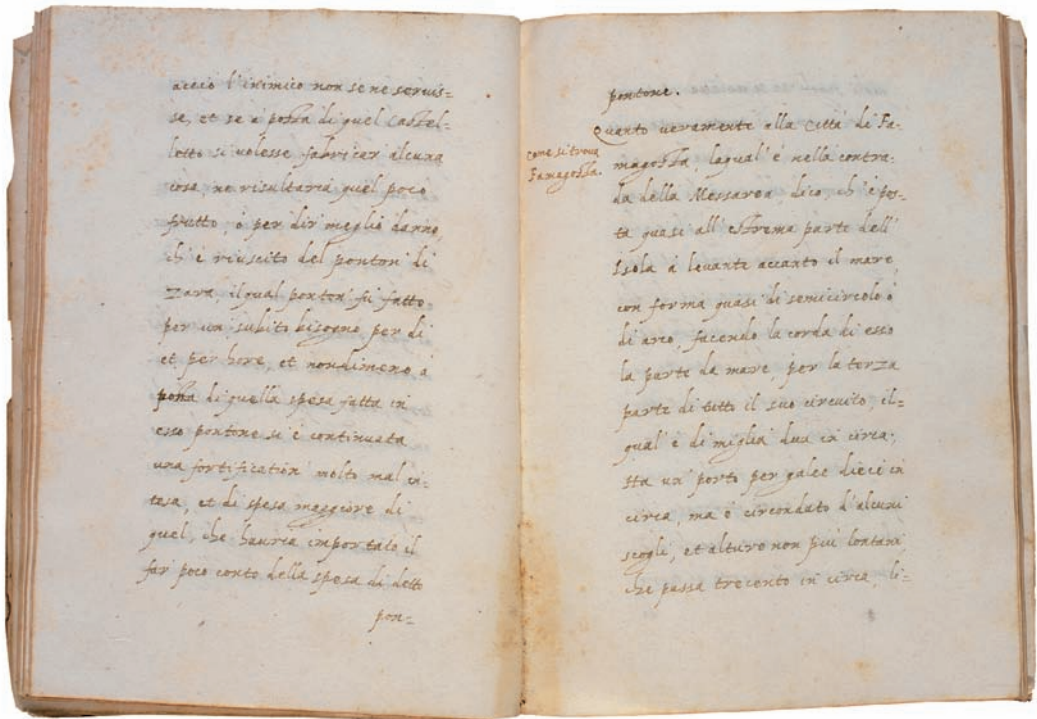 acciò l'inimico non se ne seruis=
se, et se a posta di quel Castel=
lotto si uolesse fabricar alcuna
cosa, ne risultaria quel poco
frutto, ò per dir meglio danno,
ch'è riuscito del ponton di
Zara, ilqual ponton fù fatto
per un subito bisogno per di
et per hore, et nondimeno à
posta di quella spesa fatta in
esso pontone si è continuata
una fortification molto mal in=
tesa, et di spesa maggiore di
quel, che hauria importato il
far poco conto della spesa di detto
pon=
pontone.
Quanto ueramente alla Città di Fa-
magosta, laqual'è nella contra-
da della Messarea, dico, ch'è pos-
ta quasi all'estrema parte dell'
Isola à leuante accanto il mare
con forma quasi di semicircolo ò
di arco, facendo la corda di esso
la parte da mare, per la terza
parte di tutto il suo circuito, il=
qual'è di miglia dua in circa,
Ha un porto per galee dieci in
circa, ma è circondato d'alcuni
scogli, et alture non più lontani,
che passa trecento in circa, li=
come si troua
Famagosta.